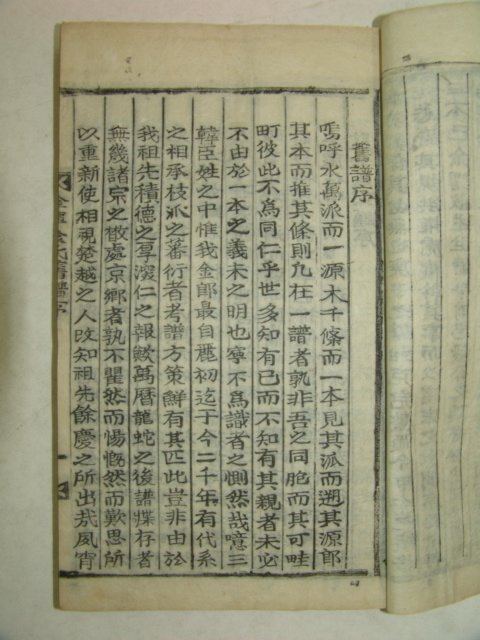 舊譜序
嗚呼水萬派而一源木千條而一本見其派而遡其源郎
其本而推其條則凡在一譜者孰非吾之同胞而其可畦
町彼此不為同仁乎世多知有已而不知有其親者未必
不由於一本之義未之明也寧不為識者之惻然哉噫三
韓臣姓之中惟我金郎最自麗初迄于今二千年有代系
之祖承枝派之蕃衍者考譜方策鮮有其匹此豈非由於
我祖先積德之厚深仁之報歟萬曆龍蛇之後譜牒存者
無幾諸宗之散處京鄉者孰不瞿然而惕慨然而歎思所
以重新使相視楚越之人改知祖先餘慶之所出哉夙宵
氏舊譜序
一